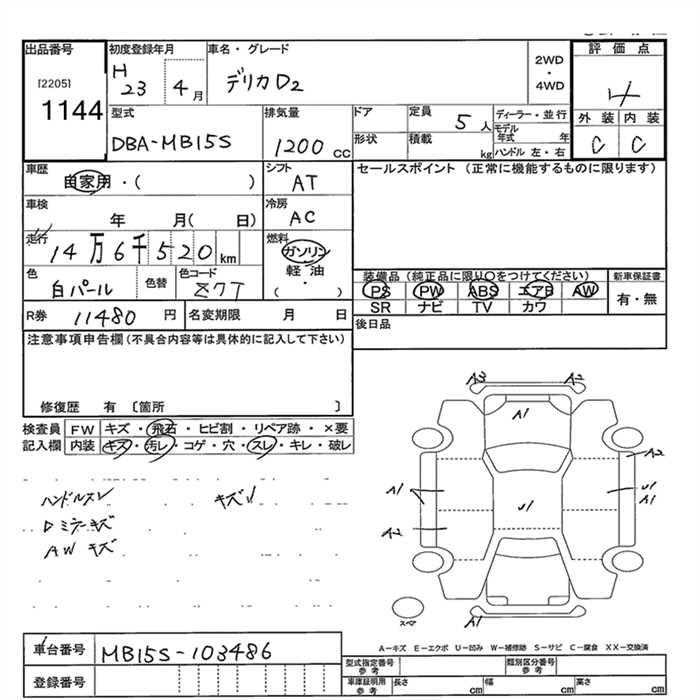 出品番号 初度登録年月 車名・グレード 2WD ・ 4WD 評価点
[2205] H 23 4月 デリカD2 4
1144 型式 排気量 ドア 定員 5人 ディーラー・並行 外装 内装
DBA-MB15S 1200cc 形状 積載 kg モデル年式 年 C C
ハンドル 左・右
車歴 自家用・( ) シフト AT セールスポイント (正常に機能するものに限ります)
車検 年 月( 日) 冷房 AC
走行 14万6千520km 燃料 ガソリン 軽油 ・ ( )
色 白パール 色替 色コード Z7T 装備品(純正品に限り○をつけてください) 新車保証書
PS PW ABS エアB AW 有・無
SR ナビ TV カワ
R券 11480円 名変期限 月 日 後日品
注意事項申告欄(不具合内容等は具体的に記入して下さい)
修復歴 有 〔箇所 〕
検査員 FW キズ・飛石・ヒビ割・リペア跡・×要
記入欄 内装 キズ・汚レ・コゲ・穴・スレ・キレ・破レ
ハンドルスレ キズ
Dミラーキズ
AW キズ
A3 A2
A1
A2
A1 U1 U1
A1
A2
スペア
A1
A-キズ E-エクボ U-凹み W-補修跡 S-サビ C-腐食 XX-交換済
車台番号 MB15S-103486
型式指定番号 参考 類別区分番号 参考
登録番号 車庫証明用 参考 長さ cm 幅 cm 高さ cm